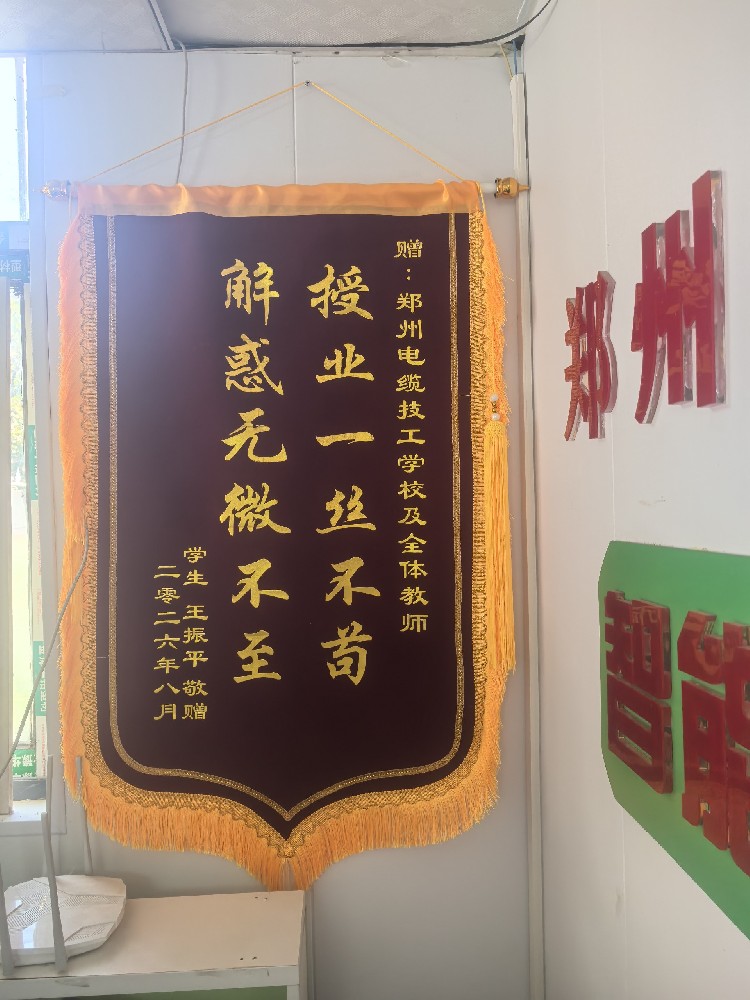 赠：郑州电缆技工学校及全体教师
授业一丝不苟
解惑无微不至
学生 王振平 敬赠
二零二六年八月
郑州
智能